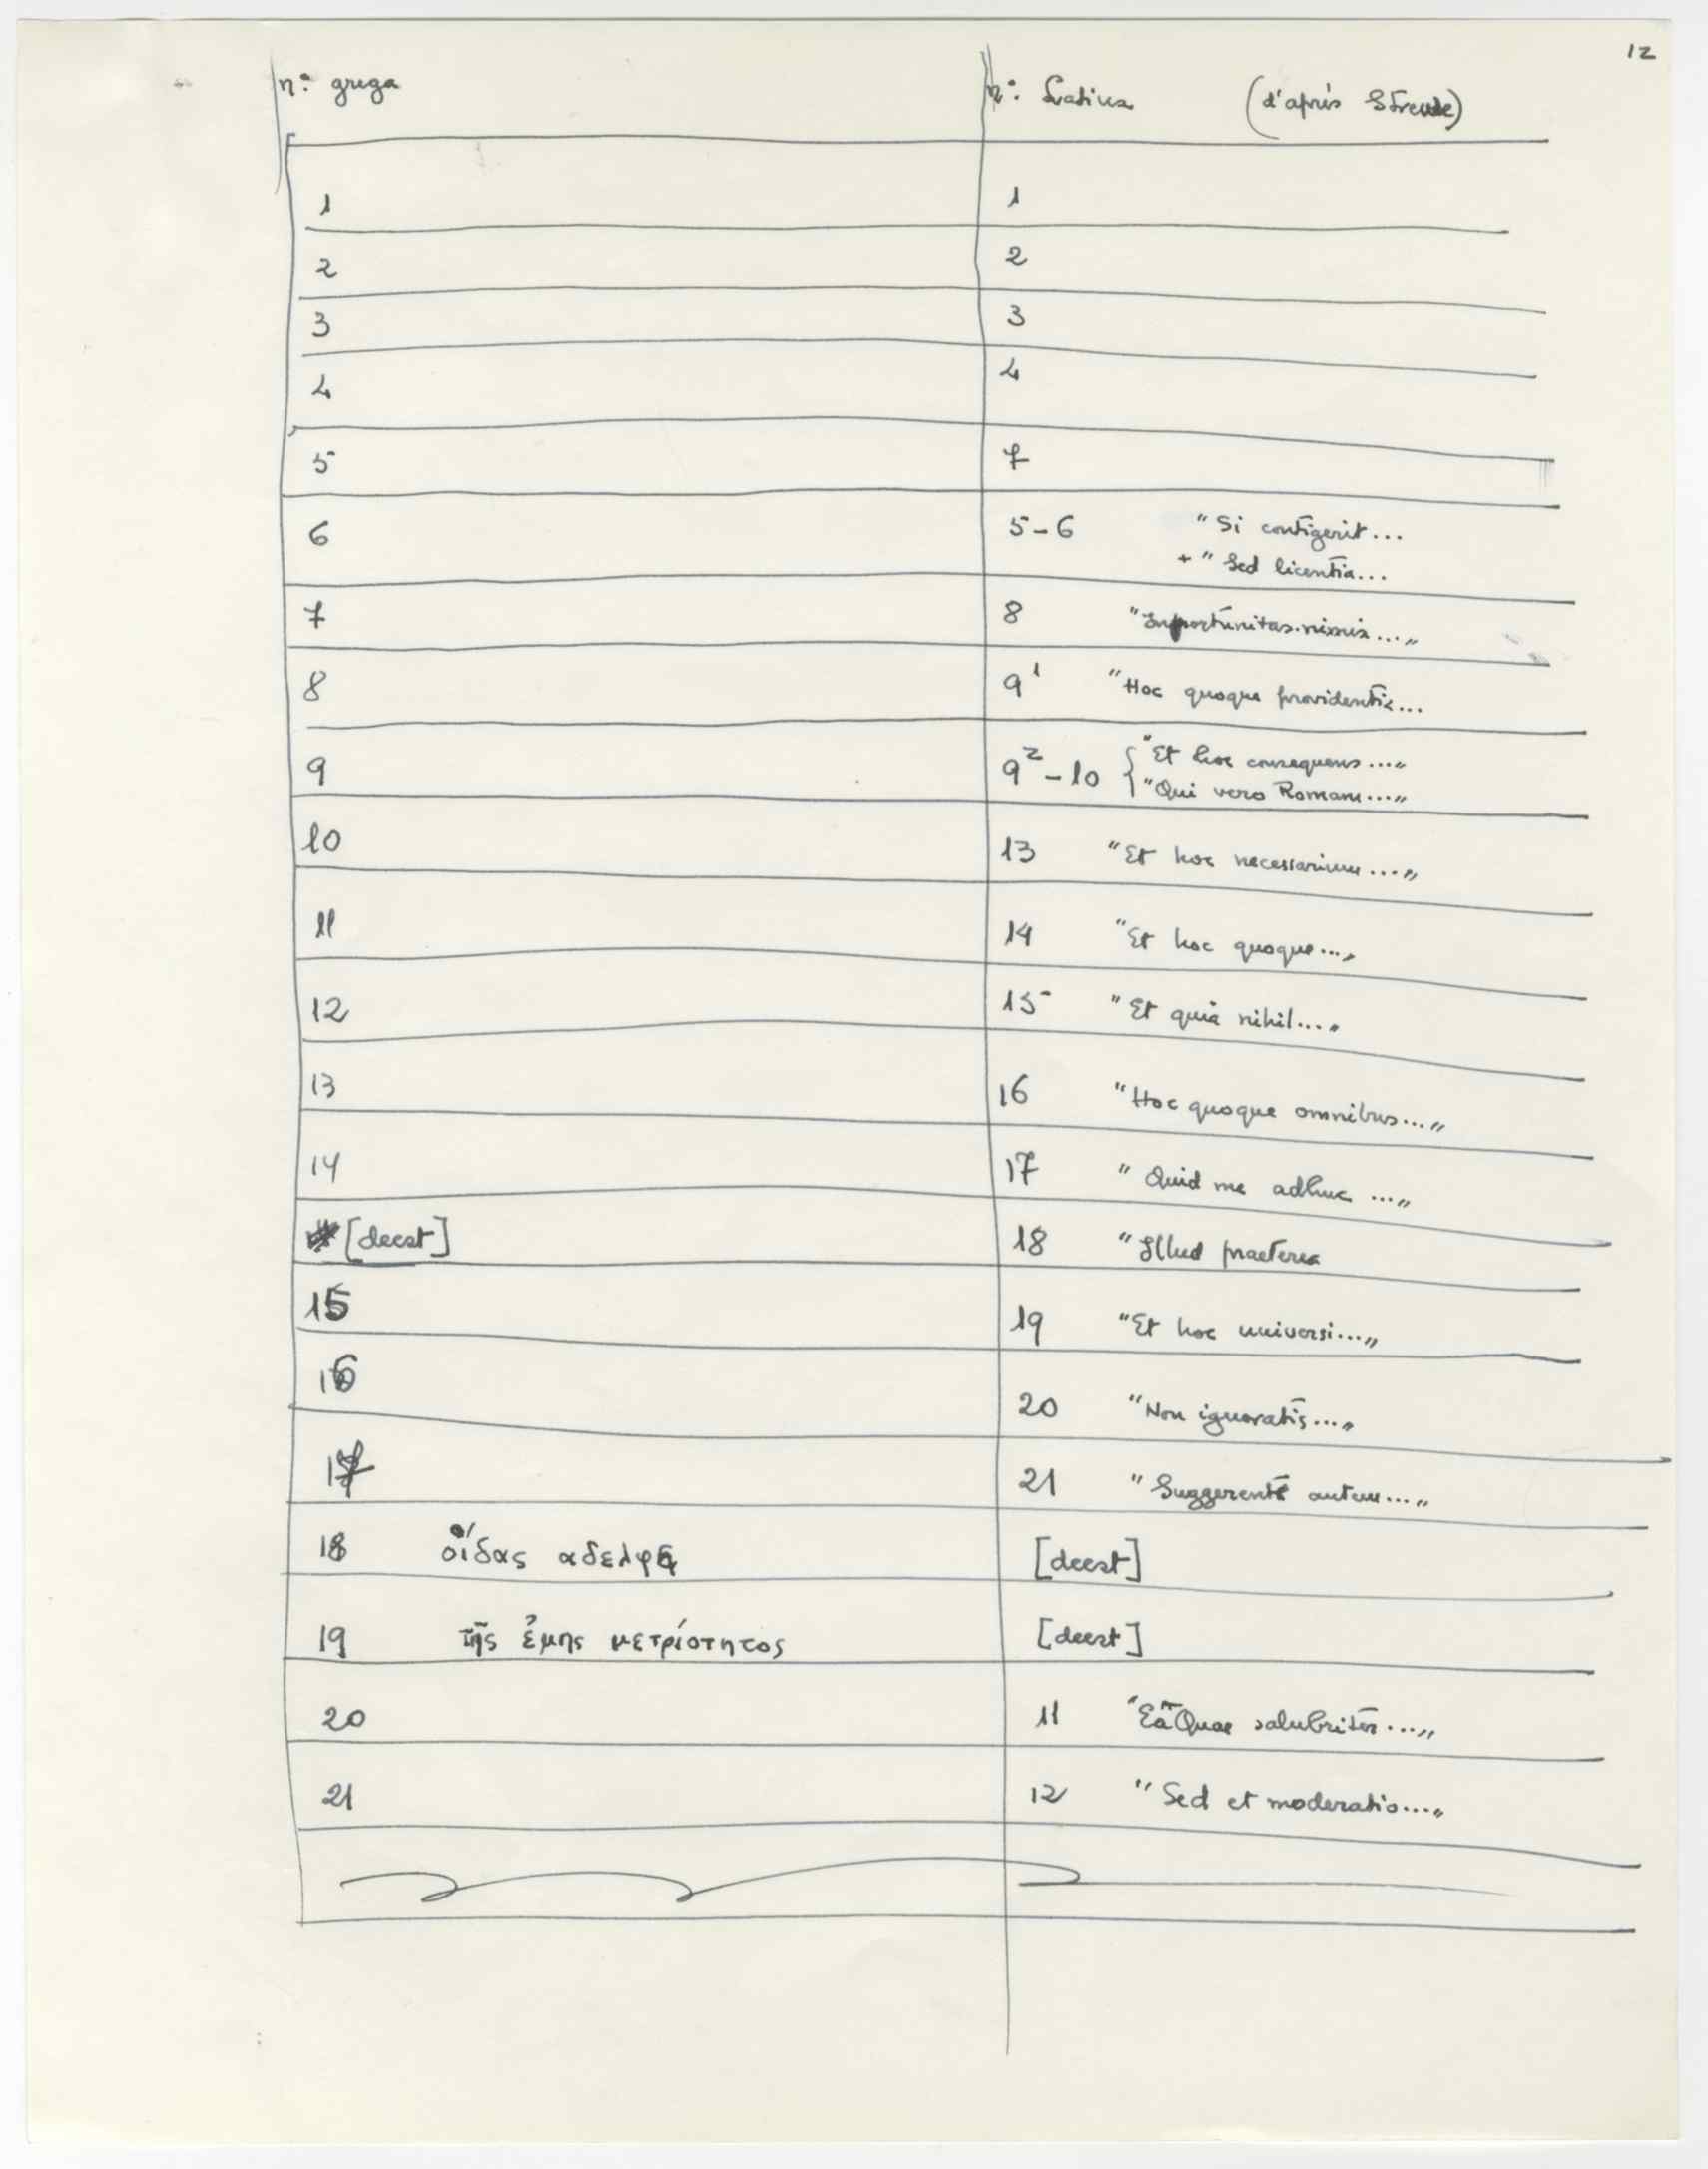 12
n.º grega n.º Latina (d'après Strewe)
1 1
2 2
3 3
4 4
5 7
6 5-6 "Si contigerit...
+ " Sed licentia...
7 8 "Importunitas nimia..."
8 9¹ "Hoc quoque providentia...
9 9²-10 { "Et hoc consequens..."
"Qui vero Romam..."
10 13 "Et hoc necessarium..."
11 14 "Et hoc quoque..."
12 15 "Et quia nihil..."
13 16 "Hoc quoque omnibus..."
14 17 "Quid me adhuc ..."
[deest] 18 "Illud praeterea
15 19 "Et hoc universi..."
16 20 "Non ignoratis..."
17 21 "Suggerente autem..."
18 οἵδας αδελφε [deest]
19 τῆς ἐμης μετρίοτητος [deest]
20 11 "Ea Quae salubriter..."
21 12 "Sed et moderatio..."